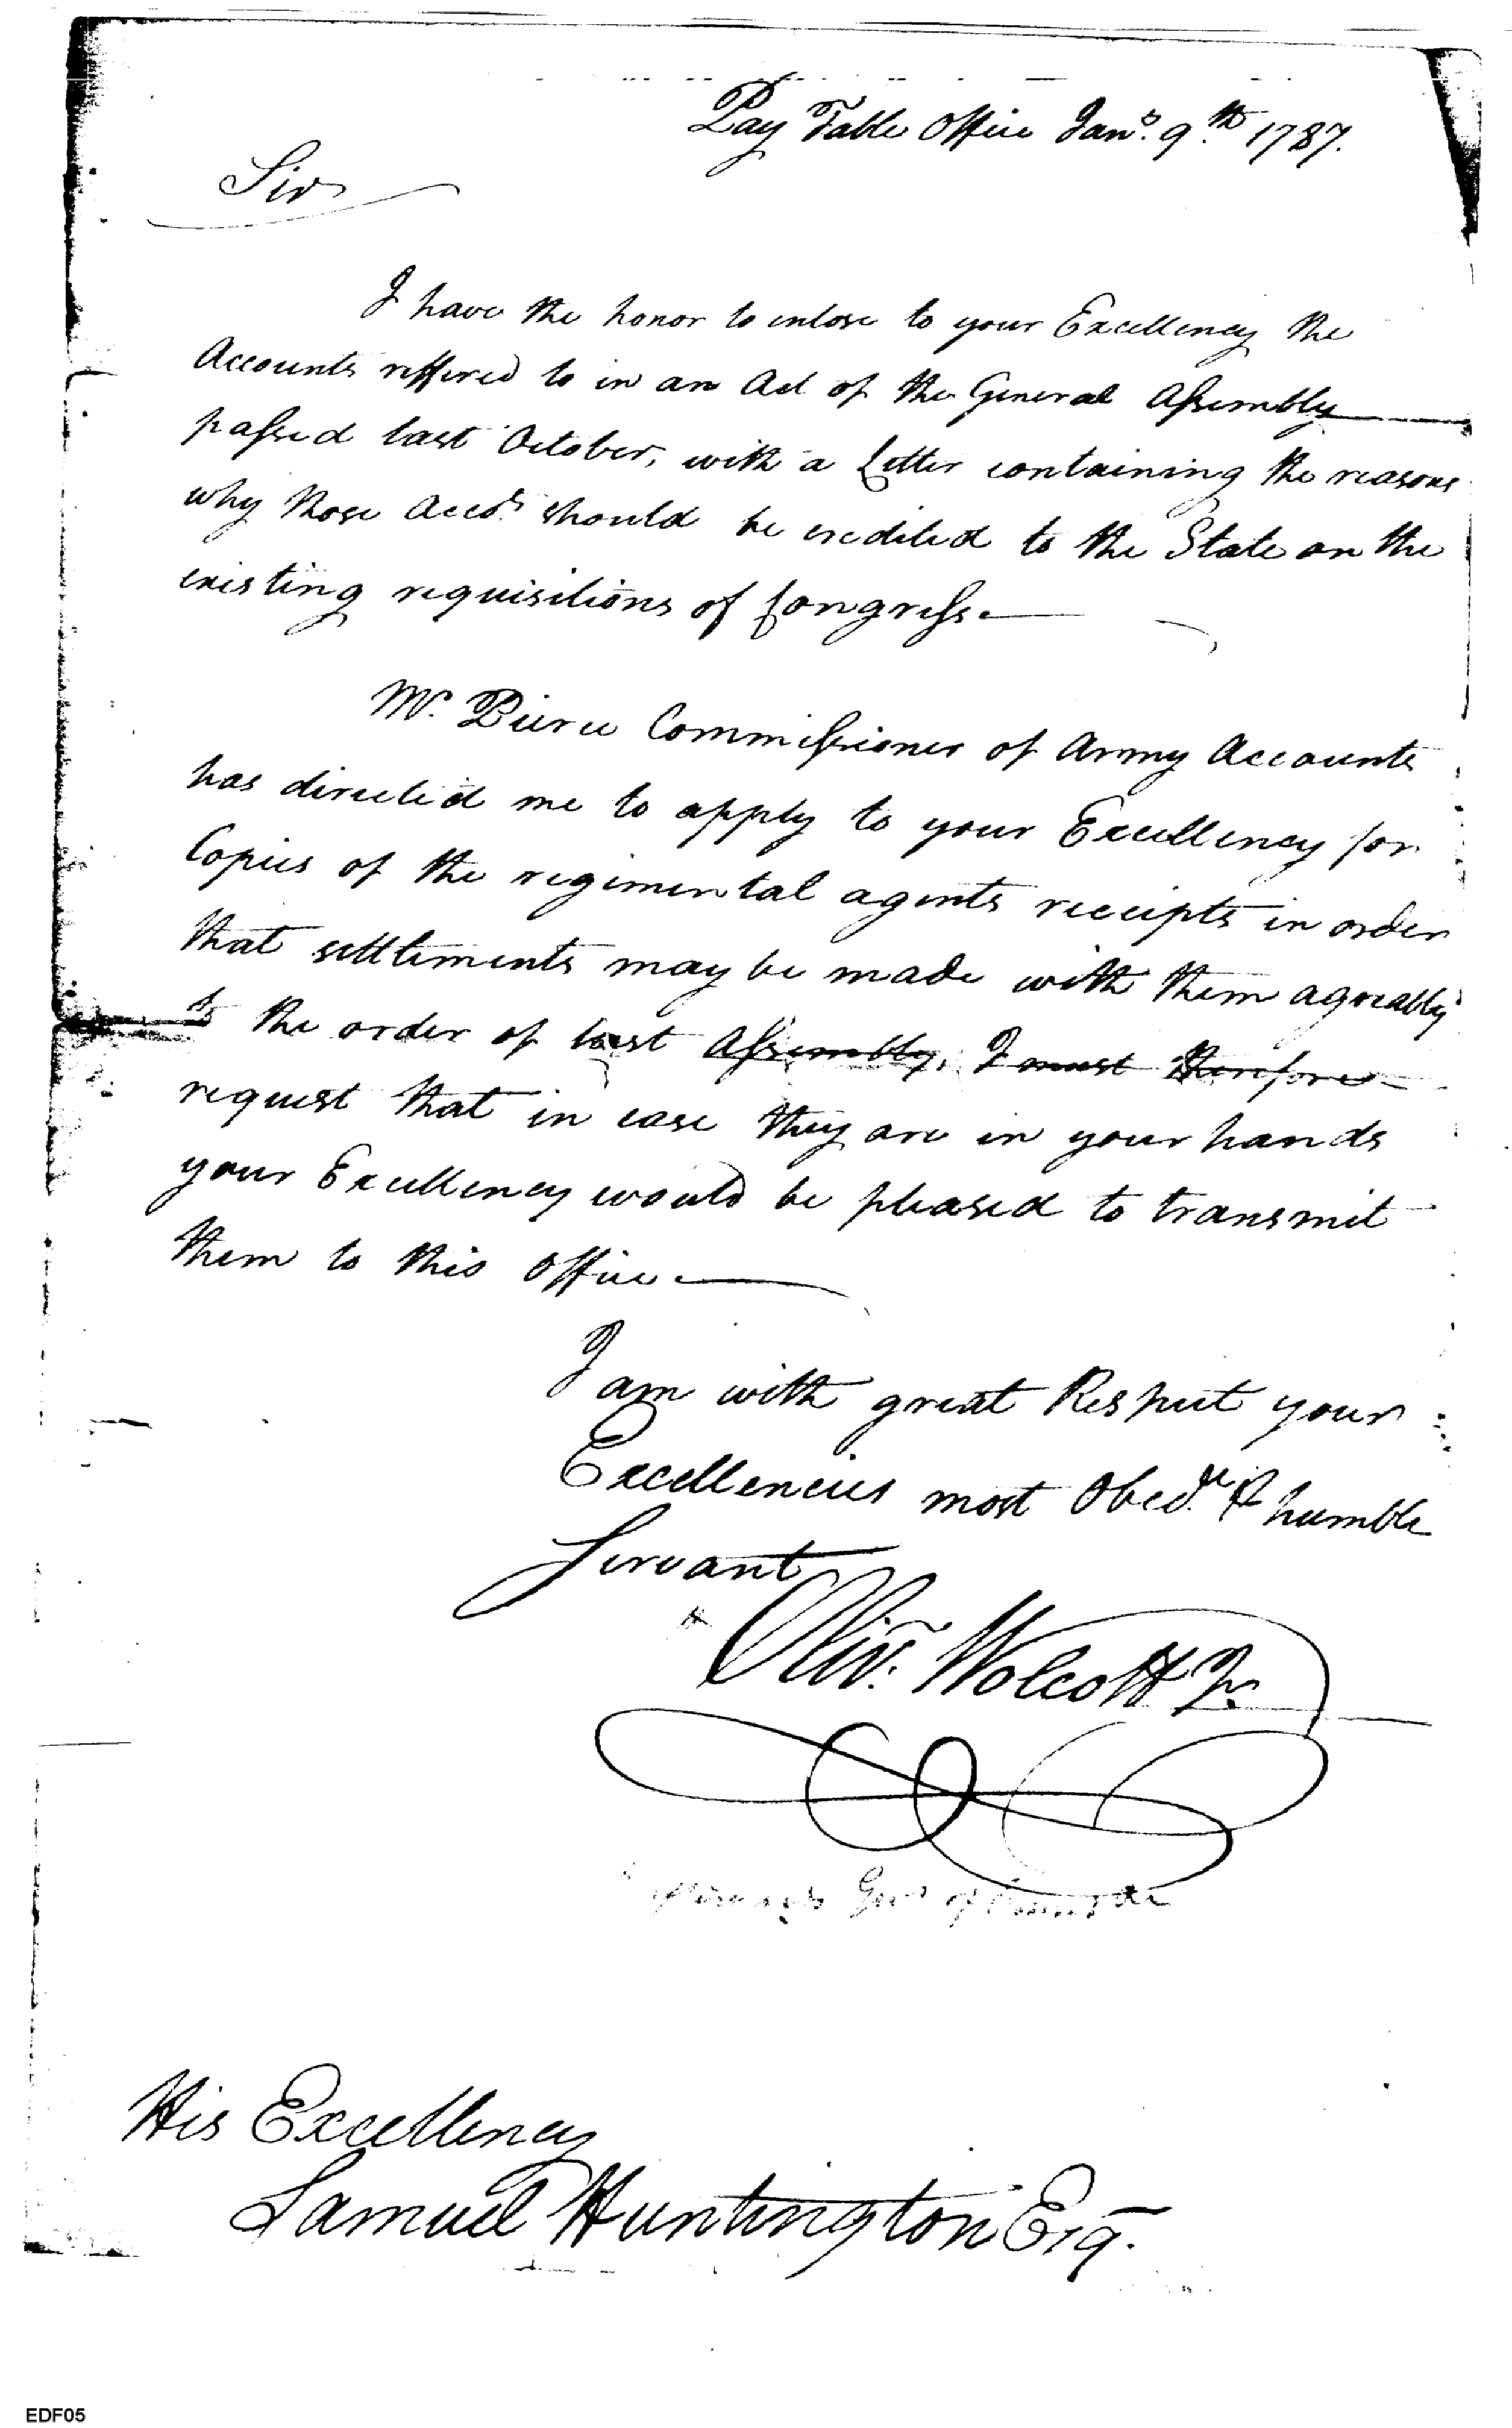 Pay Table Office Jany. 9th 1787.
Sir
I have the honor to enlose to your Excellency the
Accounts reffered to in an Act of the General Assembly
passed last October, with a Letter containing the reasons
why those Accots. should be credited to the State on the
existing requisitions of Congress.
Mr. Pierce Commissioner of Army Accounts
has directed me to apply to your Excellency for
Copies of the regimental agents receipts in order
that settlements may be made with them agreably
to the order of last Assembly, I must therefore
request that in case they are in your hands
your Excellency would be pleased to transmit
them to this Office.
I am with great Respect your
Excellencies most Obedt. & humble
Servant
Oliv. Wolcott Jr.
Govr of
His Excellency
Samuel Huntington Esq.
EDF05